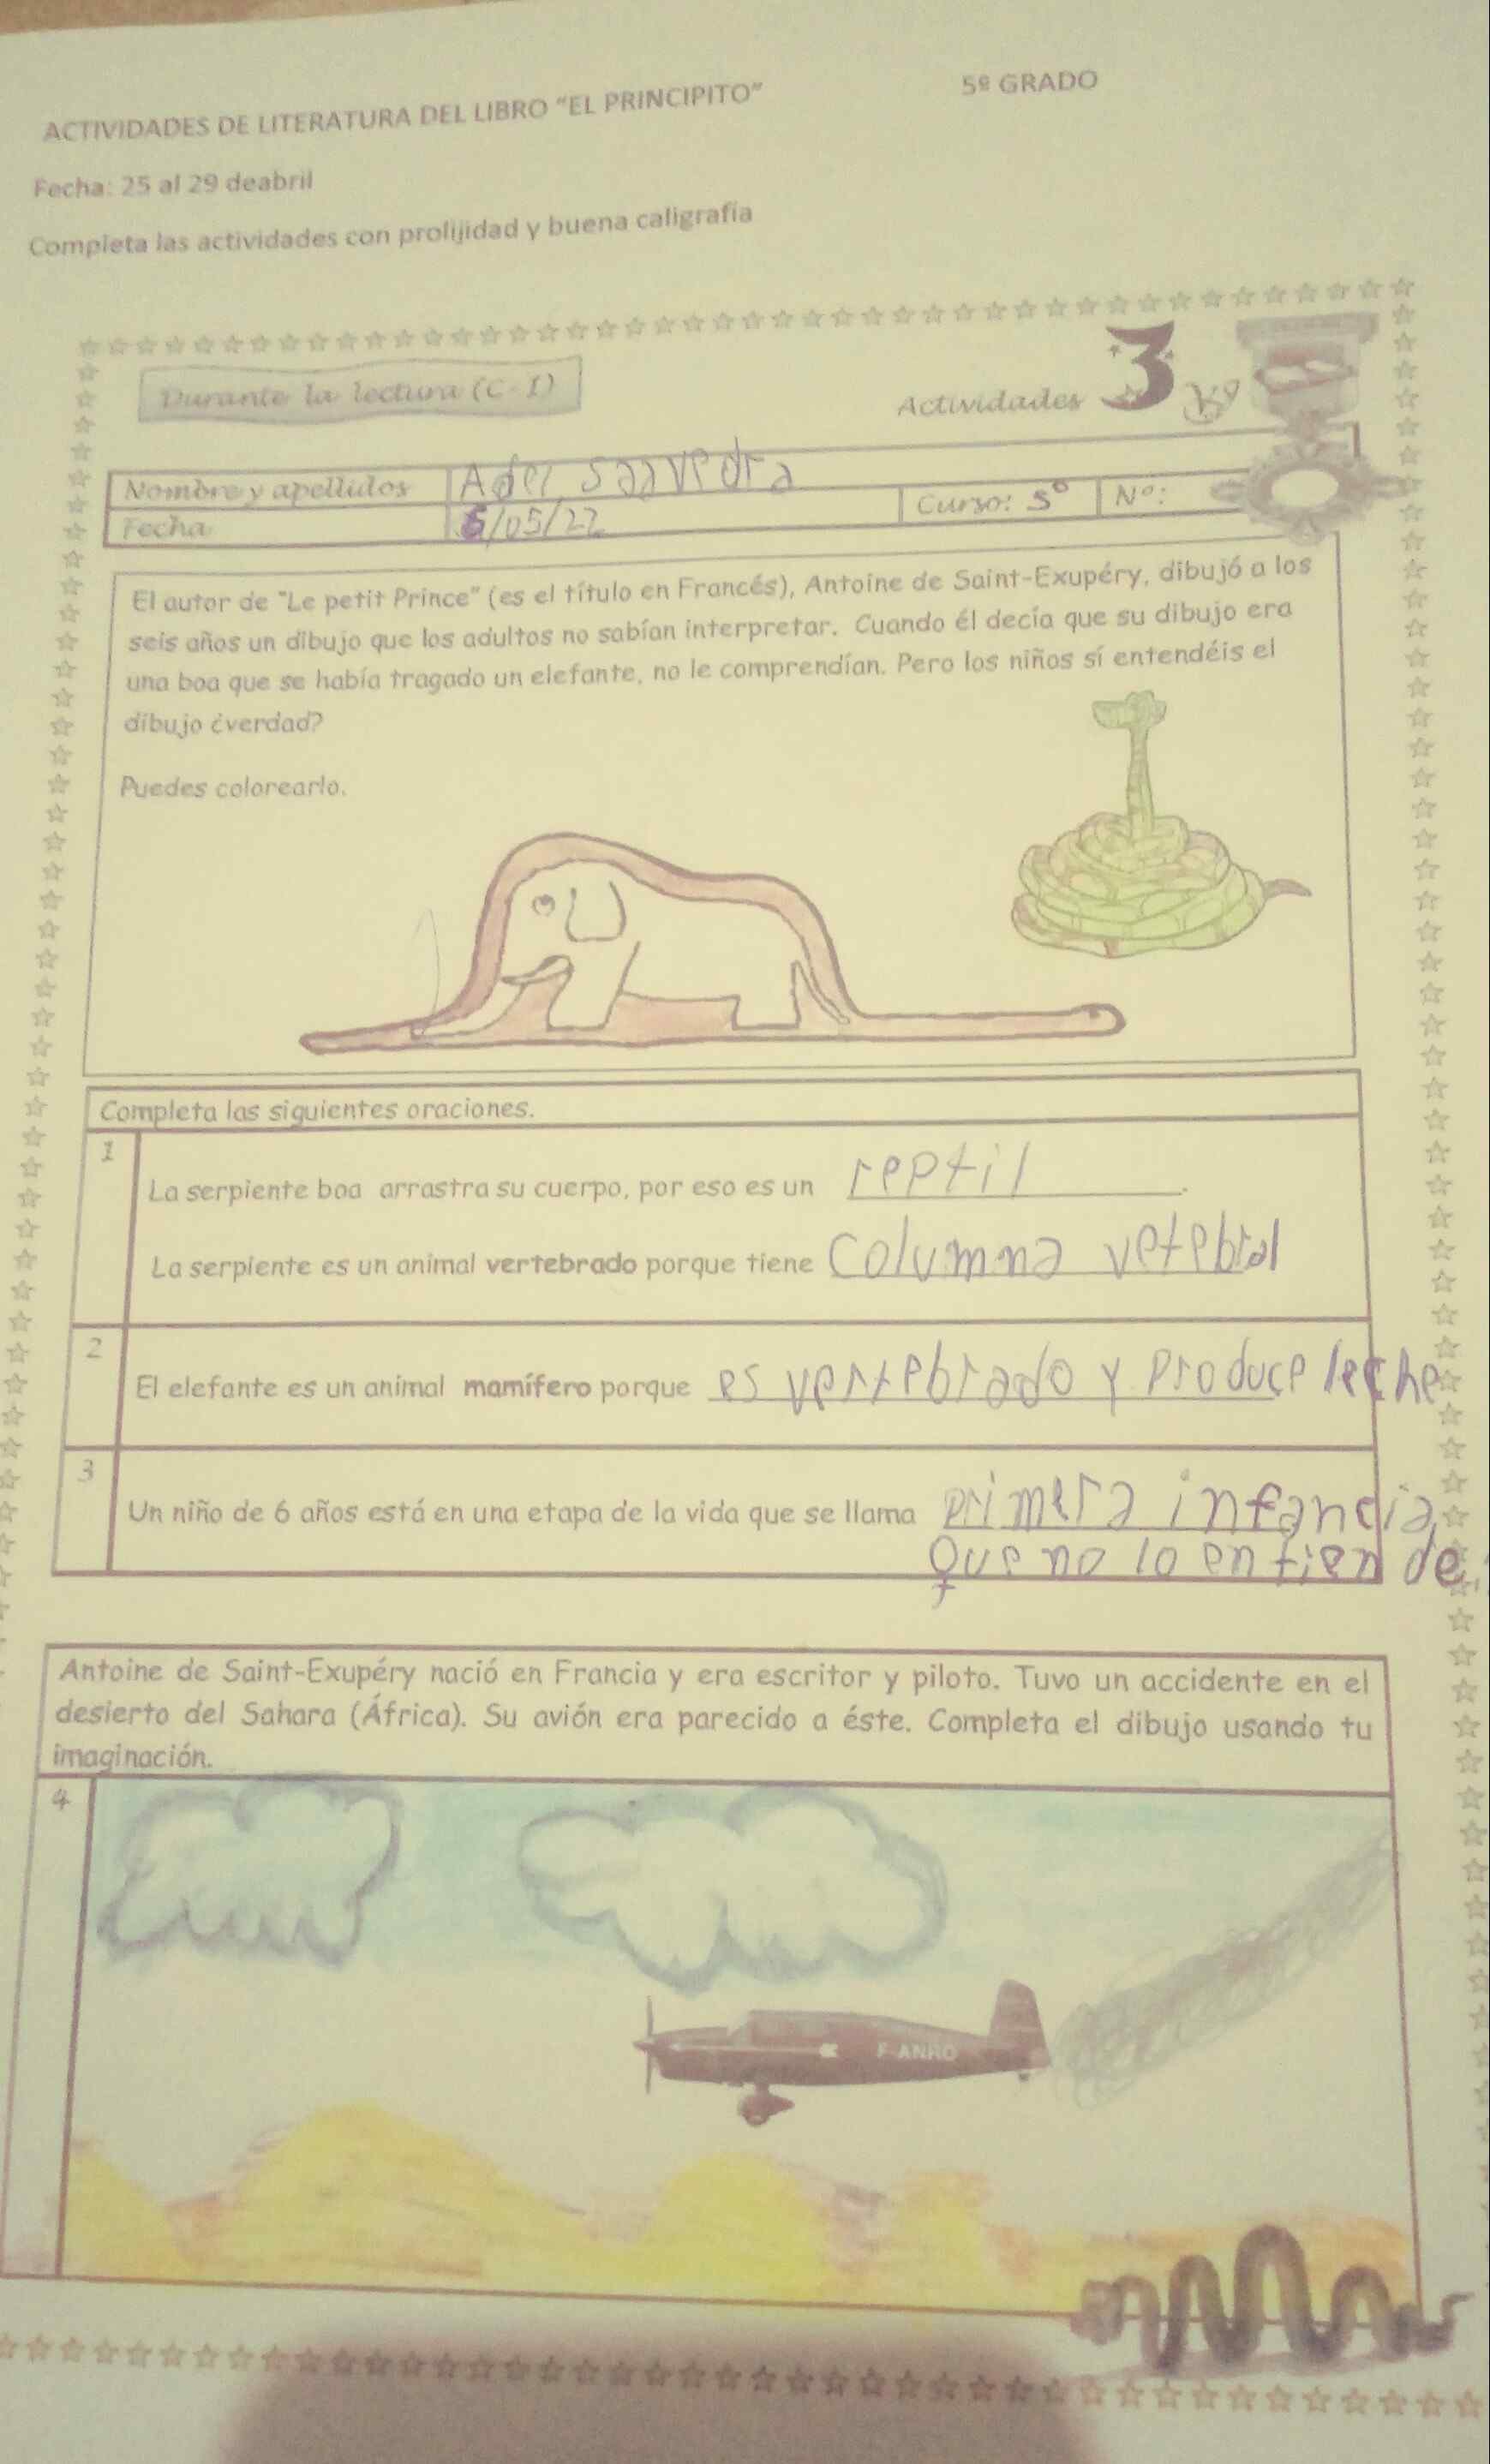 ACTIVIDADES DE LITERATURA DEL LIBRO "EL PRINCIPITO" 5º GRADO
Fecha: 25 al 29 deabril
Completa las actividades con prolijidad y buena caligrafía
Durante la lectura (C-I) Actividades 3
Nombre y apellidos Saavedra
Curso: 5º Nº:
Fecha 5/05/22
El autor de "Le petit Prince" (es el título en Francés), Antoine de Saint-Exupéry, dibujó a los
seis años un dibujo que los adultos no sabían interpretar. Cuando él decía que su dibujo era
una boa que se había tragado un elefante, no le comprendían. Pero los niños sí entendéis el
dibujo ¿verdad?
Puedes colorearlo.
Completa las siguientes oraciones.
1
La serpiente boa arrastra su cuerpo, por eso es un reptil.
La serpiente es un animal vertebrado porque tiene Columna vetebral
2
El elefante es un animal mamífero porque es vertebrado y produce leche
3
Un niño de 6 años está en una etapa de la vida que se llama primera infancia
que no lo entiende
Antoine de Saint-Exupéry nació en Francia y era escritor y piloto. Tuvo un accidente en el
desierto del Sahara (África). Su avión era parecido a éste. Completa el dibujo usando tu
imaginación.
4